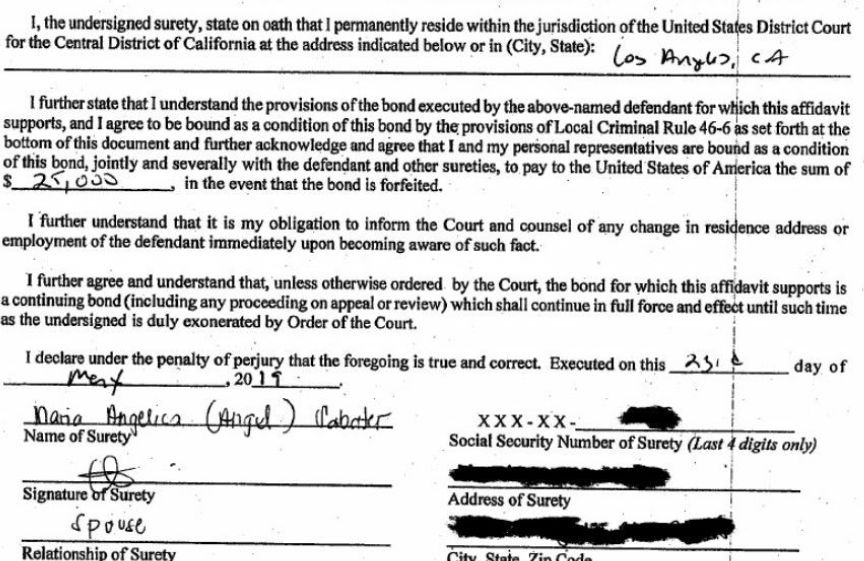 I, the undersigned surety, state on oath that I permanently reside within the jurisdiction of the United States District Court
for the Central District of California at the address indicated below or in (City, State): Los Angeles, CA
I further state that I understand the provisions of the bond executed by the above-named defendant for which this affidavit
supports, and I agree to be bound as a condition of this bond by the provisions of Local Criminal Rule 46-6 as set forth at the
bottom of this document and further acknowledge and agree that I and my personal representatives are bound as a condition
of this bond, jointly and severally with the defendant and other sureties, to pay to the United States of America the sum of
$ 25,000 , in the event that the bond is forfeited.
I further understand that it is my obligation to inform the Court and counsel of any change in residence address or
employment of the defendant immediately upon becoming aware of such fact.
I further agree and understand that, unless otherwise ordered by the Court, the bond for which this affidavit supports is
a continuing bond (including any proceeding on appeal or review) which shall continue in full force and effect until such time
as the undersigned is duly exonerated by Order of the Court.
I declare under the penalty of perjury that the foregoing is true and correct. Executed on this day of
May , 20 19 .
Maria Angelica (Angel) XXX-XX-
Name of Surety Social Security Number of Surety (Last 4 digits only)
Signature of Surety Address of Surety
Spouse
Relationship of Surety City, State, Zip Code